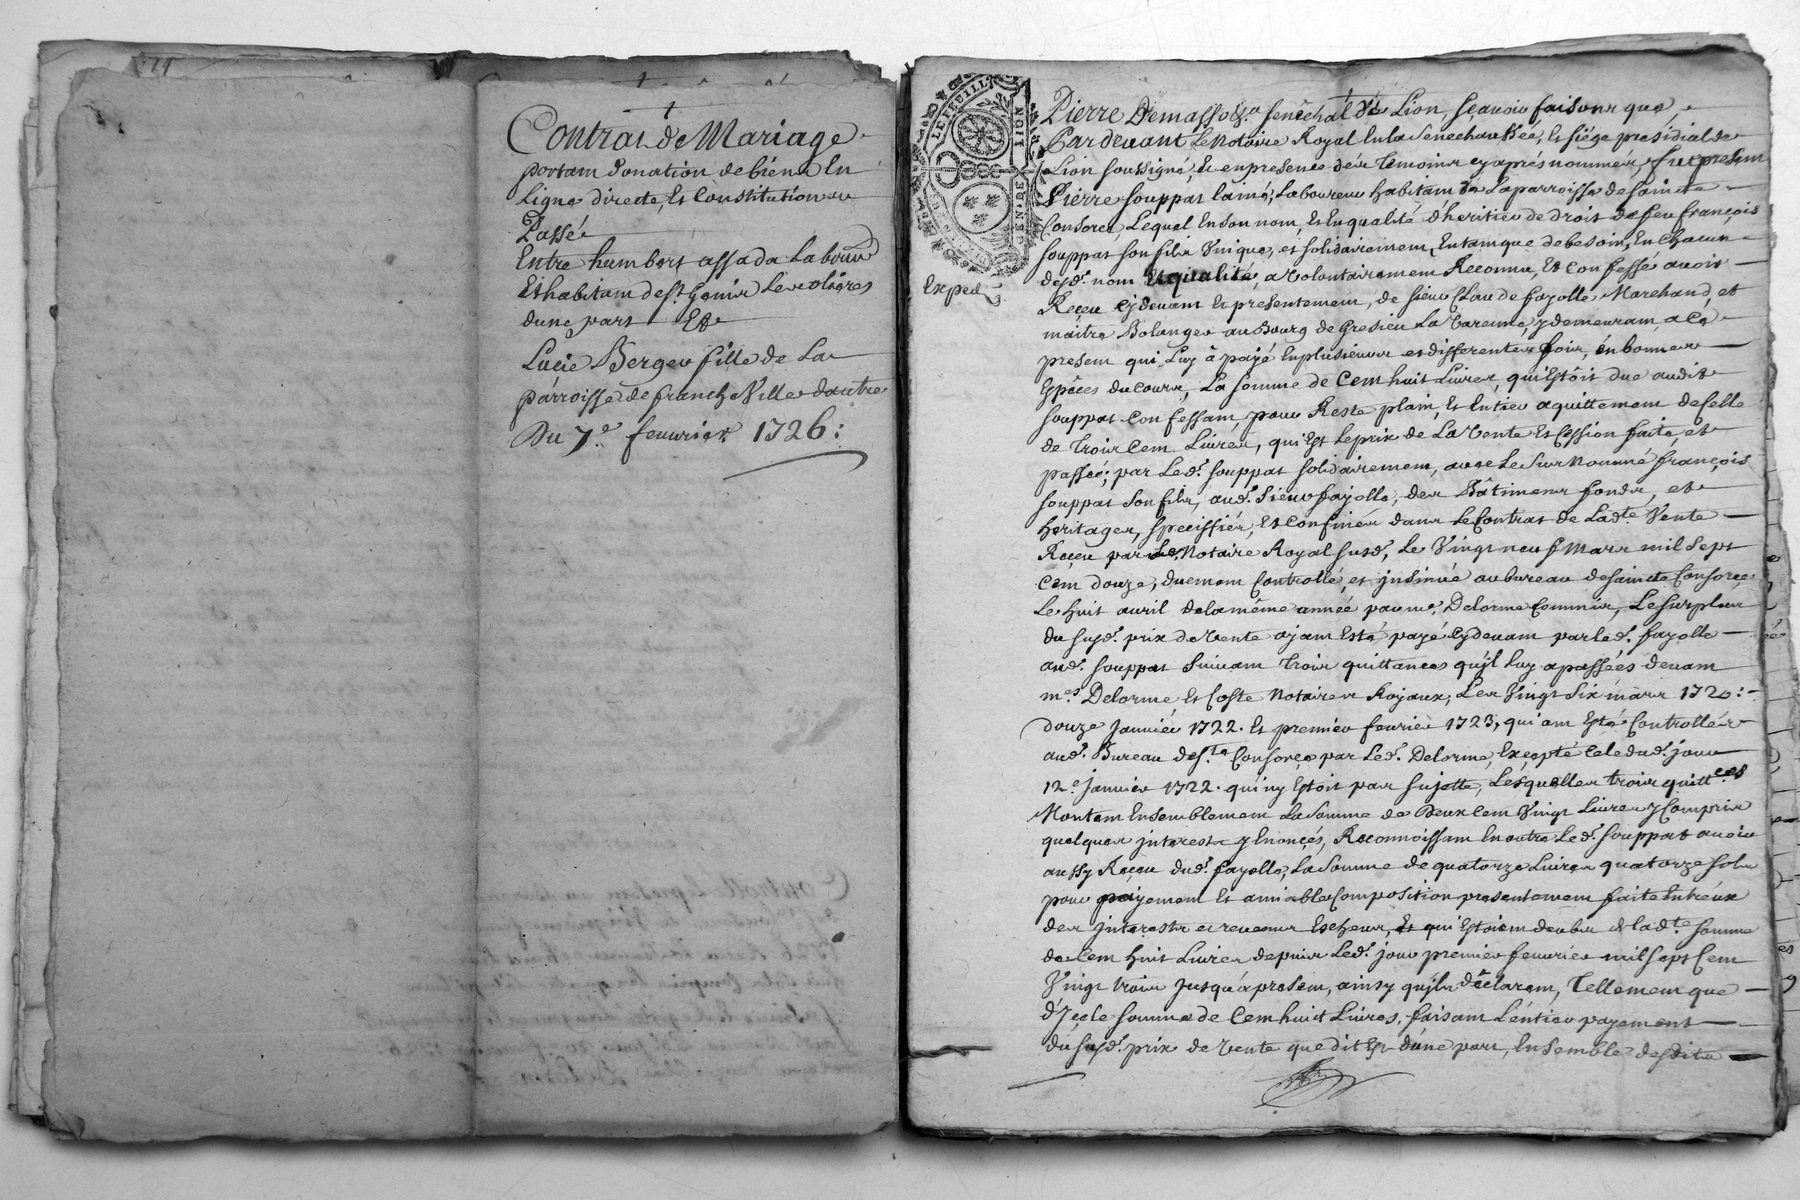 Contrat de Mariage
portant donation de biens En
Ligne directe, Et Constitution
Passé
Entre humbert assada Laboure
Et habitant de st. Genis Les olieres
dune part Et
Lucie Berger fille de La
parroisse de francheville dautre
Du 7e. feuurier 1726:
LE FEUILL
NOIT
EN. DE
Exped
Pierre Demasso Senêchal de Lion, sçauoir faisons que,
Pardeuant Le Notaire Royal En la Senechaussée, et siége presidial de
Lion soussigné, et en presence des temoins cy aprés nommés, fut present
Pierre souppat lainé, Laboureur habitant de La parroisse de saincte
Consorce, Lequel En son nom, et En qualité d'heritier de droit de feu françois
souppat son fils Vnique, et solidairement, En tant que de besoin, En chacun
desd. nom Et qualité, a volontairement Reconnu, Et Confessé auoir
Reçeu cydeuant et presentement, de sieur Claude fayolle Marchand, et
maitre Bolanger au Bourg de Gresieu La Varenne, y demeurant, a ce
present qui Luy à payé En plusieurs et differentes fois, en bonnes
Espêces du cours, La somme de Cent huit Livres, qui Estôit due audit
souppat Confessant, pour Reste plain, et Entier aquittement de Celle
de Trois Cent Livres, qui Est le prix de La Vente et Cession faite, et
passée, par Led. souppat solidairement, auec Le Surnommé françois
souppat son fils, aud. Sieur fayolle, des Bâtiments fonds, et
heritages, speciffiés, Et Confinés dans Le Contrat de Ladte Vente
Reçeu par Le Notaire Royal susd., Le Vingt neuf Mars mil sept
Cent douze, duement Controllé, et jnsinué au bureau de saincte Consorce
Le huit auril de la même année par me. Delorme Commis, Le surplus
du susd. prix de Vente ayant Esté payé Cydeuant par led. fayolle
aud. souppat suiuant Trois quittances qu'jl Luy a passées deuant
mes. Delorme Et Coste Notaires Royaux, Les Vingt six mars 1720:
douze Januier 1722. Et premier feurier 1723, qui ont Esté Controllées
aud. Bureau de ste Consorce par Led. Delorme, Excepté Cele dud. jour
12e. Januier 1722. qui ny Estoit pas sujette, Lesquelles trois quittces
Montant Ensemblement La somme de Deux Cent Vingt Livres y Compris
quelques jnterests y Enoncés, Reconnoissant En outre Led. souppat auoir
aussy Reçeu dud. fayolle, La somme de quatorze Livres quatorze sols
pour payement Et amiable Composition presentement faite Entreux
des jnterests et reuenus Escheus, et qui Estoient deubs de ladte. somme
de Cent huit Livres depuis Led. jour premier feuurier mil sept Cent
Vingt trois jusqu'à present, ainsy qu'jls dêclarent, Tellement que
d'Jcele somme de Cent huit Livres, faisant L'éntier payement
du susd. prix de Vente que dit Est d'une part, Ensemble desdits